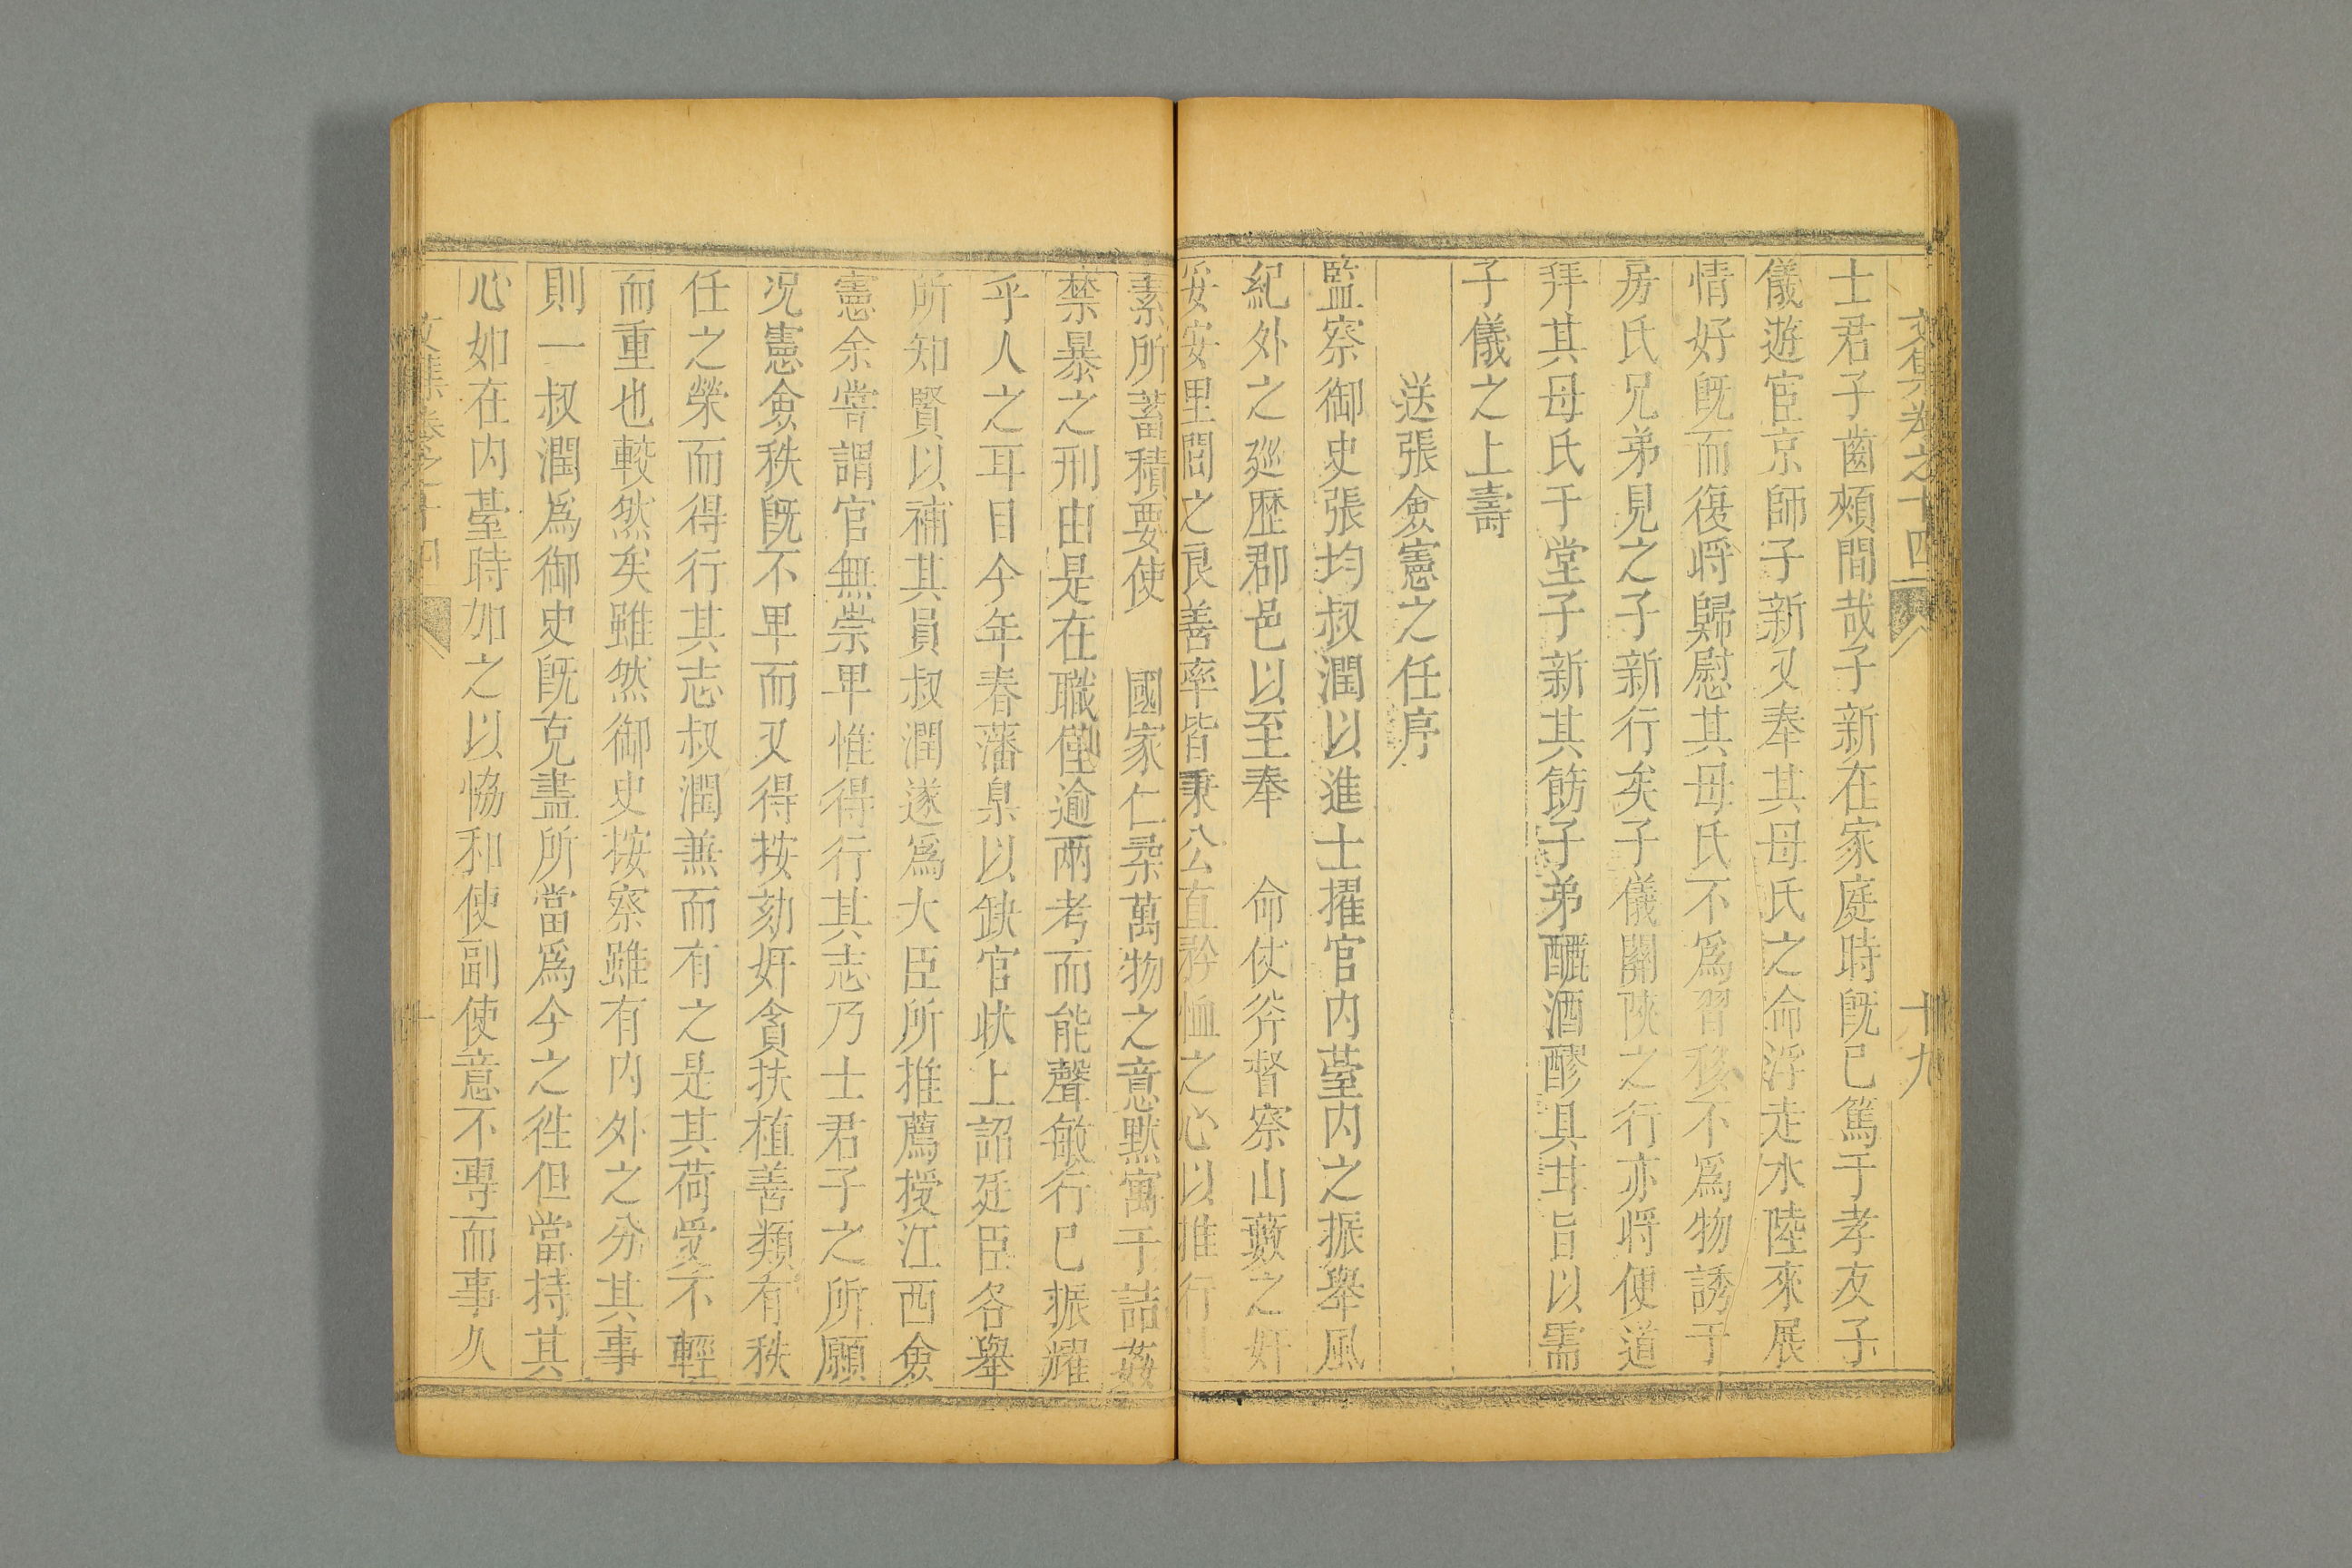 文集卷之十四 十九
士君子齒頰間哉子新在家庭時旣已篤于孝友子
儀遊宦京師子新又奉其母氏之命浮走水陸來展
情好旣而復將歸慰其母氏不爲習移不爲物誘于
房氏兄弟見之子新行矣子儀關陝之行亦將便道
拜其母氏于堂子新其飭子弟釃酒醪具甘旨以需
子儀之上壽
送張僉憲之任序
監察御史張均叔潤以進士擢官内䑓内之振舉風
紀外之廵歷郡邑以至奉 命使斧督察山藪之奸
妥安里閭之良善率皆秉公直矜恤之心以推行
素所蓄積要使 國家仁柔萬物之意默寓于詰姦
禁暴之刑由是在職僅逾兩考而能聲敏行已振耀
乎人之耳目今年春藩臬以缺官狀上詔廷臣各舉
所知賢以補其員叔潤遂爲大臣所推薦授江西僉
憲余甞謂官無崇卑惟得行其志乃士君子之所願
况憲僉秩旣不卑而又得按劾奸貪扶植善類有秩
任之榮而得行其志叔潤兼而有之是其荷受不輕
而重也較然矣雖然御史按察雖有内外之分其事
則一叔潤爲御史旣克盡所當爲今之徃但當持其
心如在内䑓時加之以恊和使副使意不專而事久
文集卷之十四